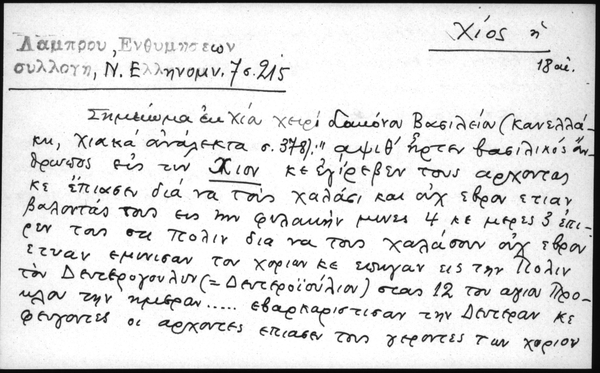 Λάμπρου, Ενθυμήσεων
Χίος ἡ
συλλογή, Ν. Ελληνομν. 7 σ. 215
18 αἰ.
Σημείωμα ἐκ Χία χειρὶ διακόνου Βασιλείου (Κανελλά-
κη, Χιακά ἀνάλεκτα σ. 378): " αψιθ' ἦρτεν βασιλικός ἄν-
θρωπος εἰς τιν Χιον κε ἐγίρεβεν τους αρχοντας
κε ἔπιασεν διά να τοὺς χαλάσι και οὐχ εβρον ετιαν
βαλοντάς τους εις την φυλακήν μινες 4 κε μερες 3 ἐπι-
ρεν τους στι Πολιν δια να τους χαλάσουν οὐχ εβρον
ετιαν εμινισαν τον χοριον κε επιγαν εις την Πολιν
τὸν Δευτερογουλιν (= Δευτεροϊούλιον) στας 12 του αγιου Προ-
κλου την ημεραν ..... εβαρκαριστισαν την Δευτεραν κε
φευγοντες οι αρχοντες επιασεν τους γεροντες των χοριον